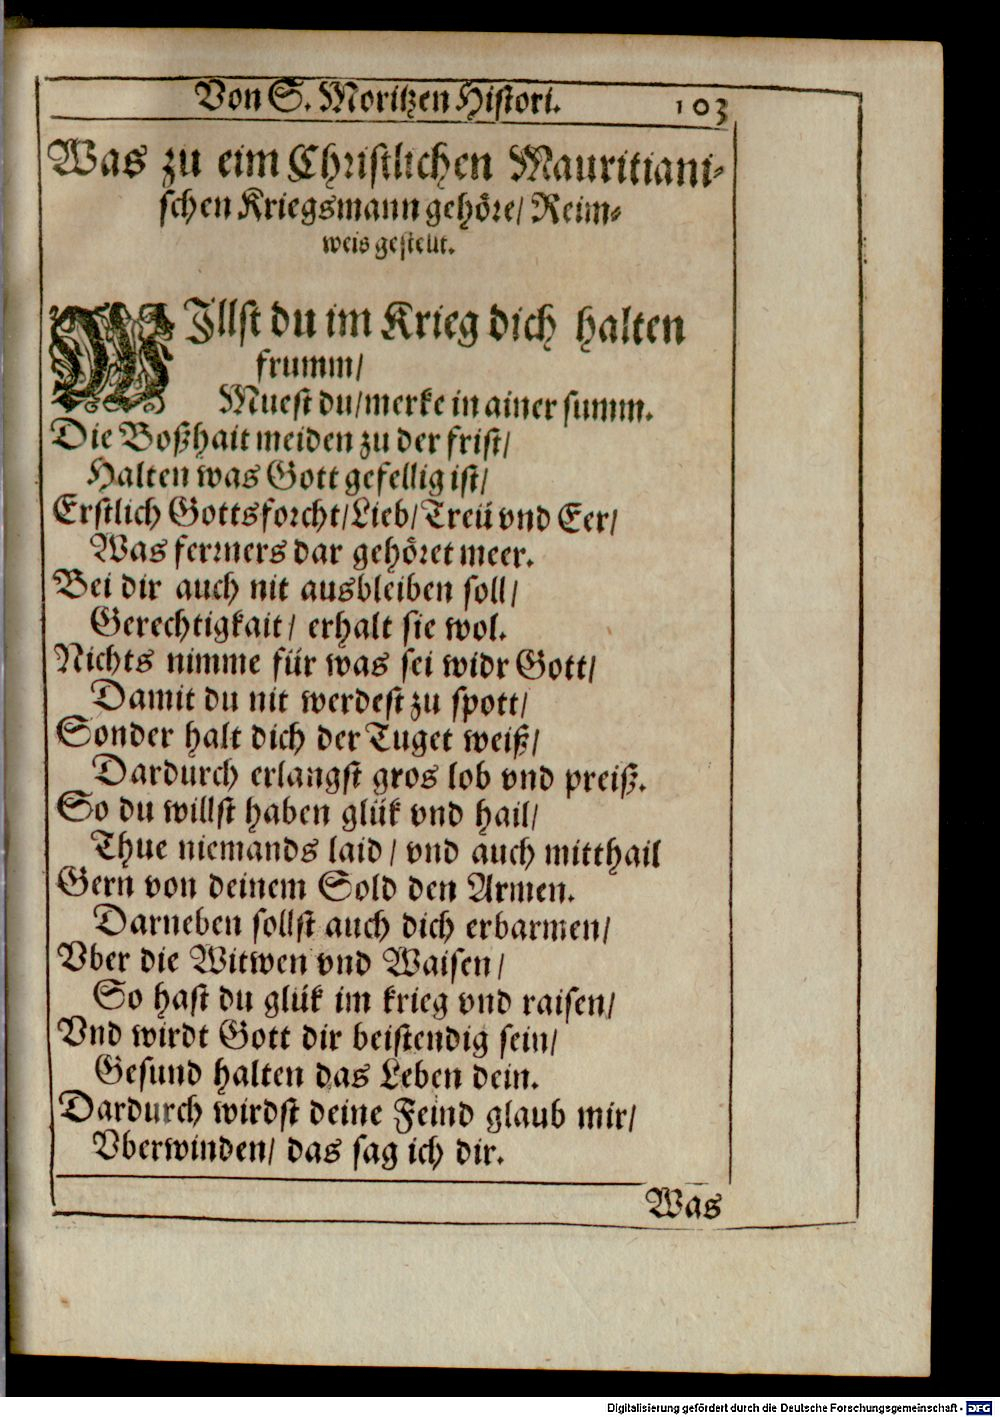 Von S. Moritzen Histori. 103
Was zu eim Christlichen Mauritiani-
schen Kriegsmann gehöre/ Reim-
weis gestellt.
WIllst du im Krieg dich halten
frumm/
Muest du/merke in ainer summ.
Die Boßhait meiden zu der frist/
Halten was Gott gefellig ist/
Erstlich Gottsforcht/Lieb/Treü vnd Eer/
Was ferrners dar gehöret meer.
Bei dir auch nit ausbleiben soll/
Gerechtigkait/ erhalt sie wol.
Nichts nimme für was sei widr Gott/
Damit du nit werdest zu spott/
Sonder halt dich der Tuget weiß/
Dardurch erlangst gros lob vnd preiß.
So du willst haben glük vnd hail/
Thue niemands laid/ vnd auch mitthail
Gern von deinem Sold den Armen.
Darneben sollst auch dich erbarmen/
Vber die Witwen vnd Waisen/
So hast du glük im krieg vnd raisen/
Vnd wirdt Gott dir beistendig sein/
Gesund halten das Leben dein.
Dardurch wirdst deine Feind glaub mir/
Vberwinden/ das sag ich dir.
Was
Digitalisierung gefördert durch die Deutsche Forschungsgemeinschaft - DFG